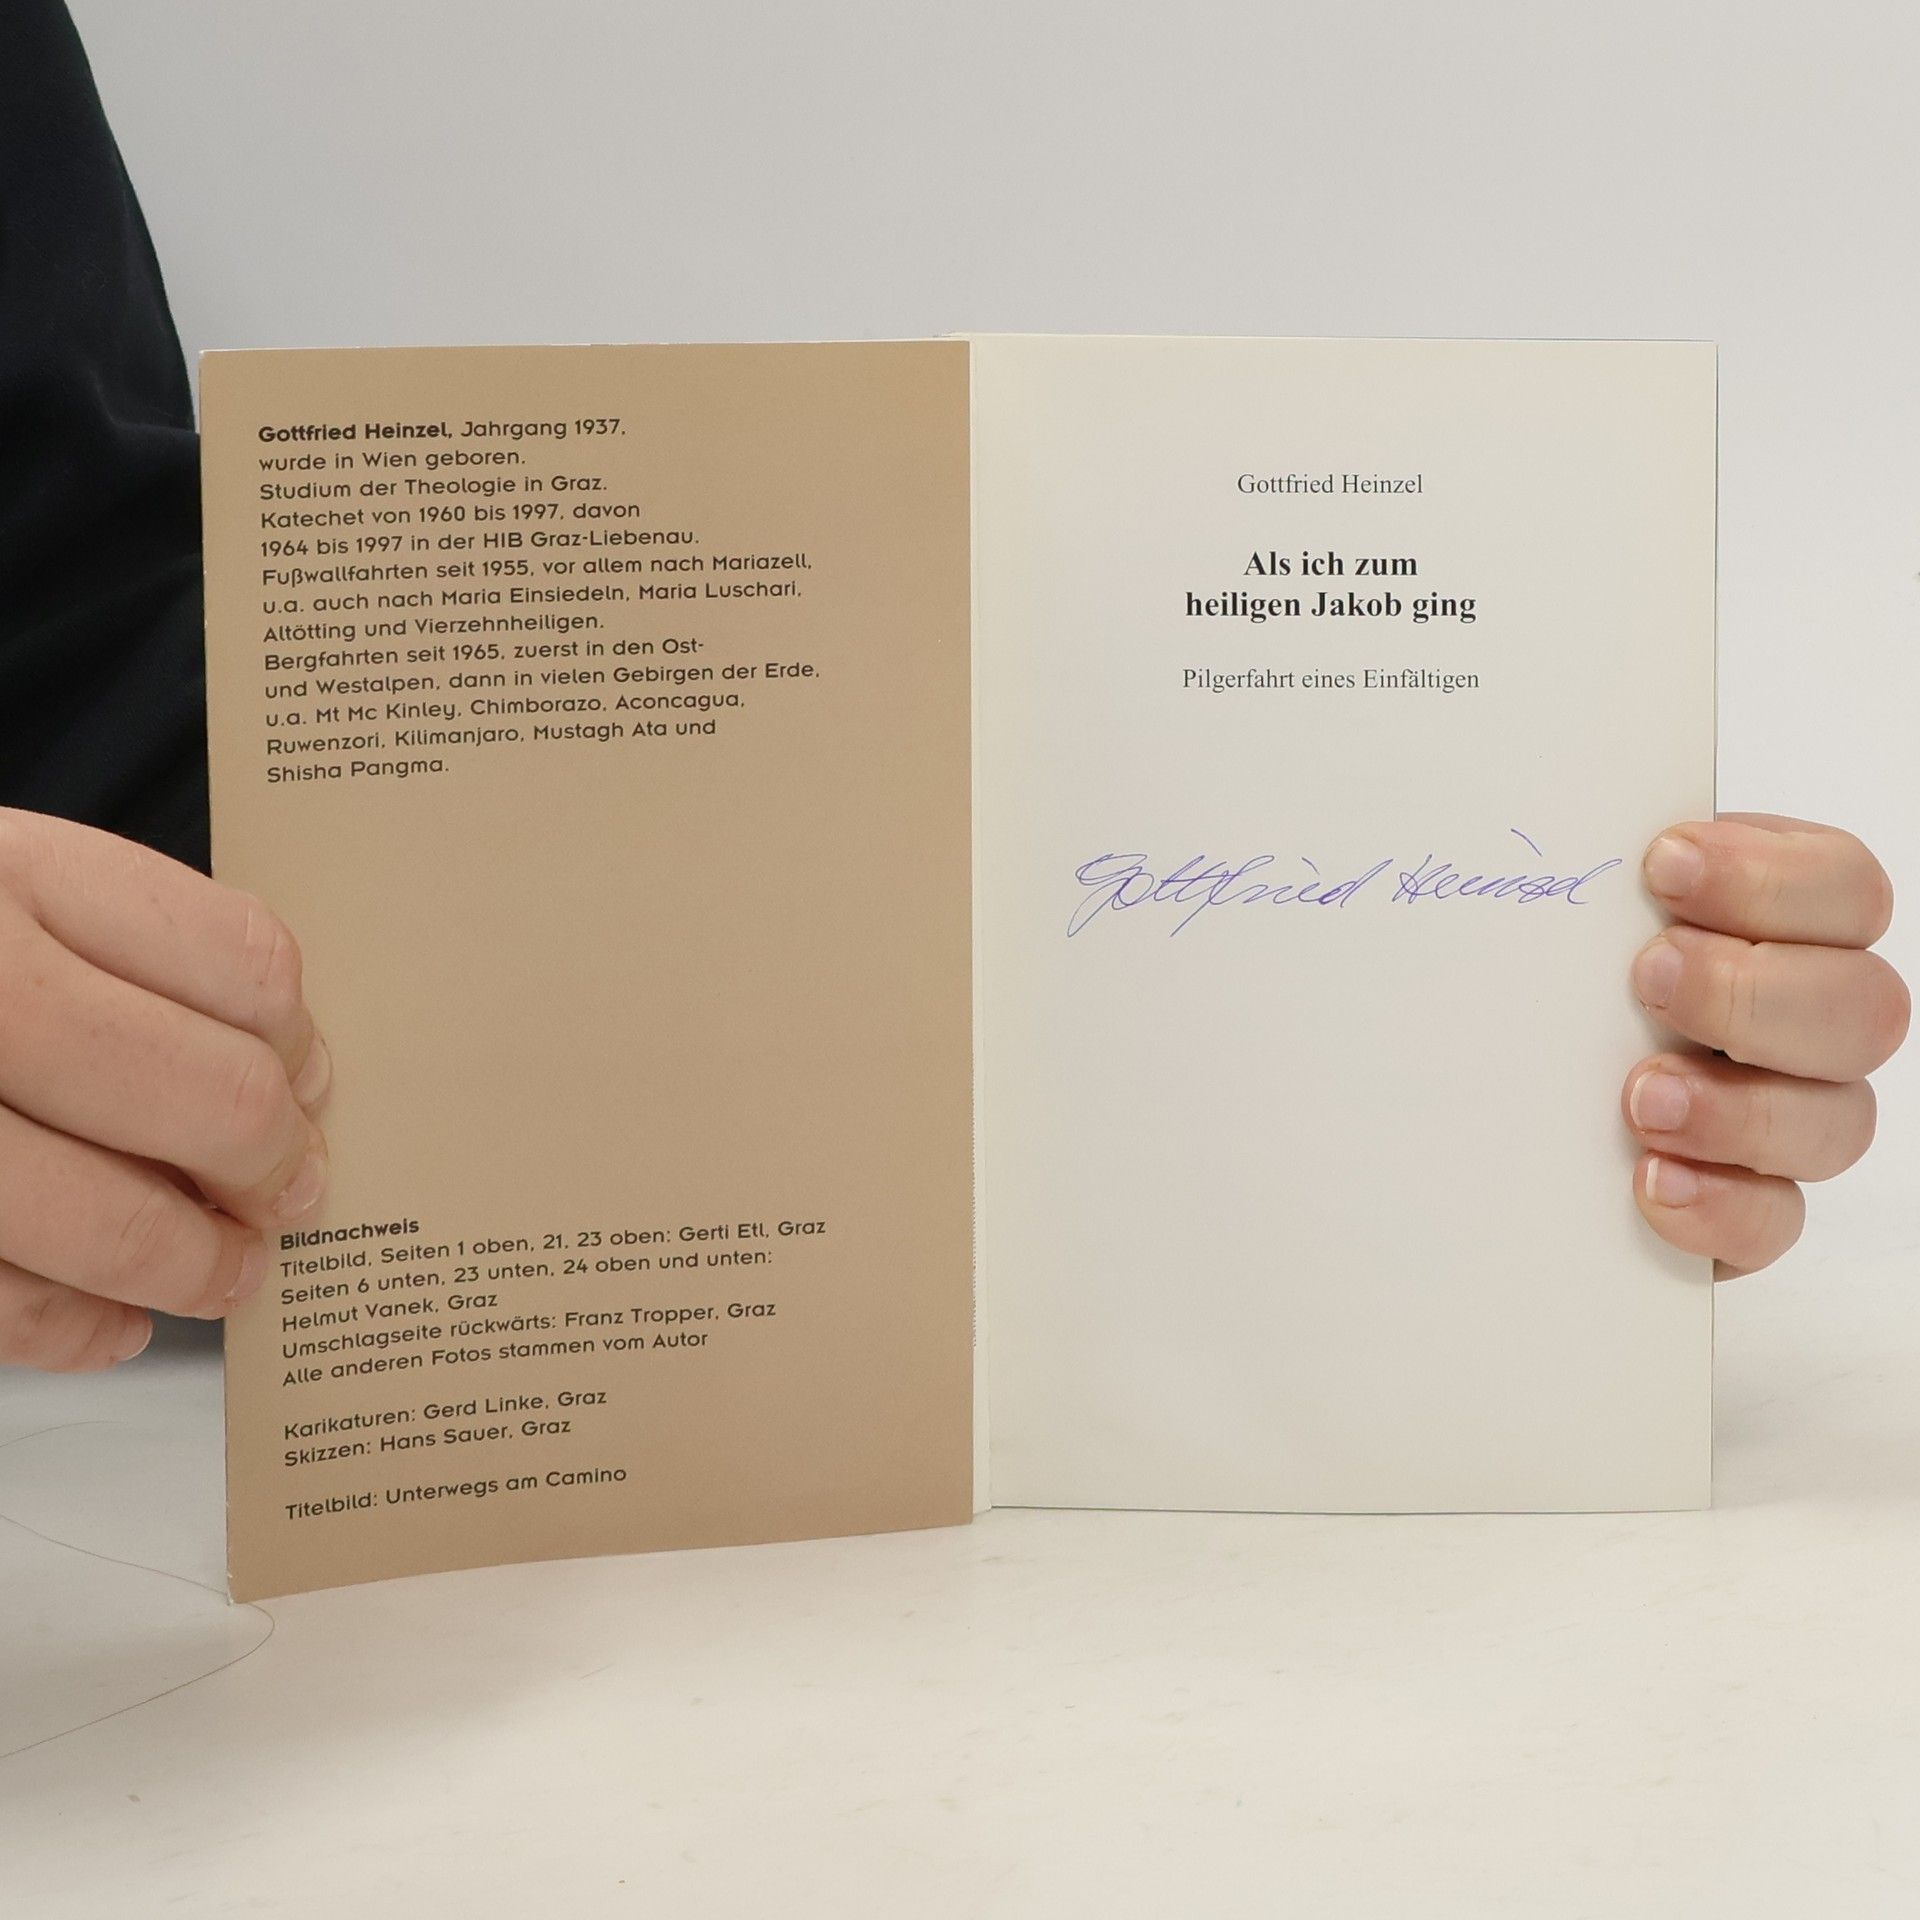 Gottfried Heinzel, Jahrgang 1937,
wurde in Wien geboren.
Studium der Theologie in Graz.
Katechet von 1960 bis 1997, davon
1964 bis 1997 in der HIB Graz-Liebenau.
Fußwallfahrten seit 1955, vor allem nach Mariazell,
u.a. auch nach Maria Einsiedeln, Maria Luschari,
Altötting und Vierzehnheiligen.
Bergfahrten seit 1965, zuerst in den Ost-
und Westalpen, dann in vielen Gebirgen der Erde,
u.a. Mt Mc Kinley, Chimborazo, Aconcagua,
Ruwenzori, Kilimanjaro, Mustagh Ata und
Shisha Pangma.
Bildnachweis
Titelbild, Seiten 1 oben, 21, 23 oben: Gerti Etl, Graz
Seiten 6 unten, 23 unten, 24 oben und unten:
Helmut Vanek, Graz
Umschlagseite rückwärts: Franz Tropper, Graz
Alle anderen Fotos stammen vom Autor
Karikaturen: Gerd Linke, Graz
Skizzen: Hans Sauer, Graz
Titelbild: Unterwegs am Camino
Gottfried Heinzel
Als ich zum
heiligen Jakob ging
Pilgerfahrt eines Einfältigen
Gottfried Heinzel